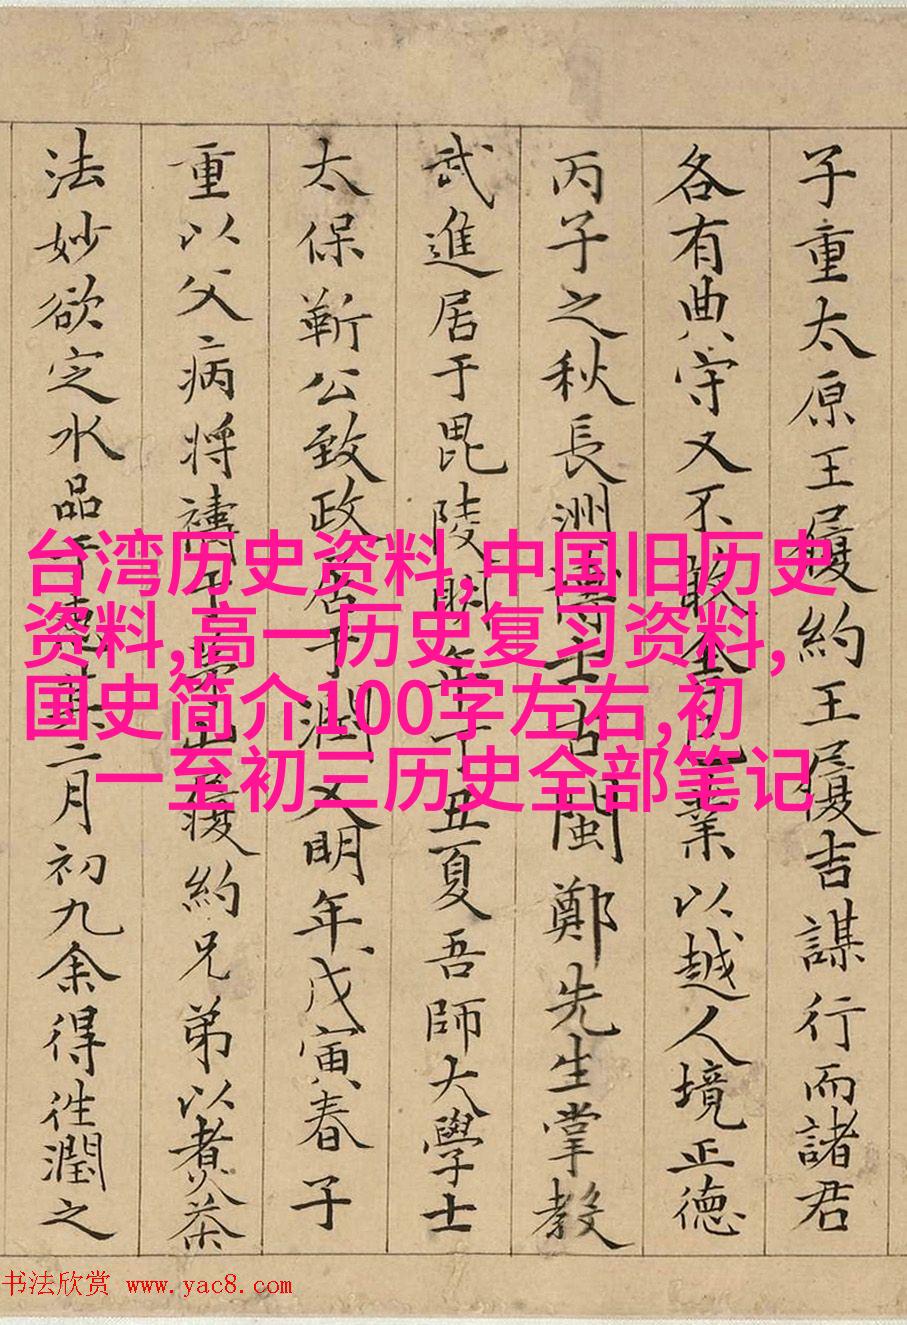 子重太原王履約王履吉謀行而諸君
各有典守又不敢舍業以越人境正德
丙子之秋長洲博士古閩鄭先生掌教
武進居于毘陵明年丁丑夏吾師大學士
太保靳公致政居于潤又明年戊寅春子
重以父病將禱于茅山履約兄弟以煑茶
法妙欲定水品于惠其月初九余得往潤之
台湾历史资料,中国旧历史
资料,高一历史复习资料,
国史简介100字左右,初
一至初三历史全部笔记
书法欣赏 www.yac8.com